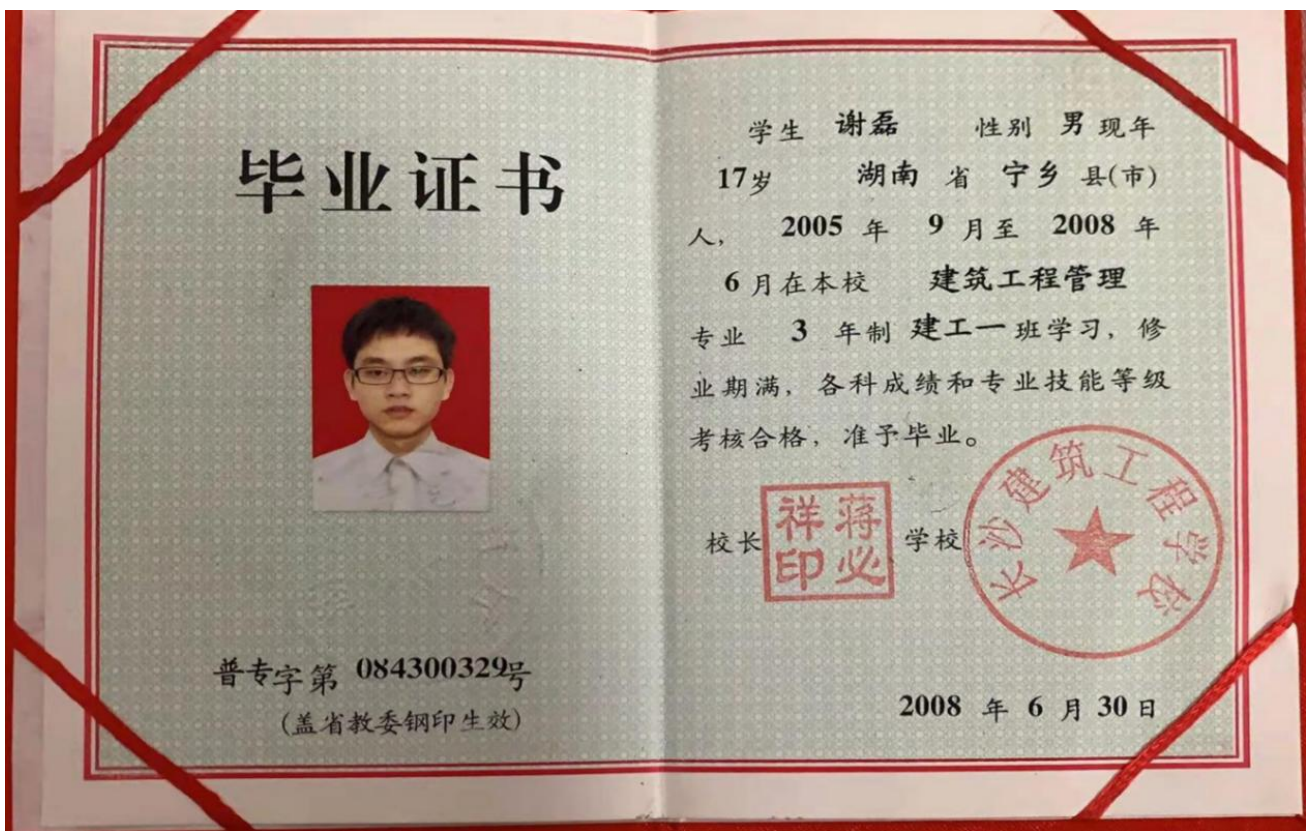 毕业证书
普专字第 084300329号
(盖省教委钢印生效)
学生 谢磊 性别 男 现年
17岁 湖南 省 宁乡 县(市)
人, 2005 年 9 月至 2008 年
6 月在本校 建筑工程管理
专业 3 年制 建工一 班学习, 修
业期满, 各科成绩和专业技能等级
考核合格, 准予毕业。
校长 蒋必祥印 学校 长沙建筑工程学校
2008 年 6 月 30 日